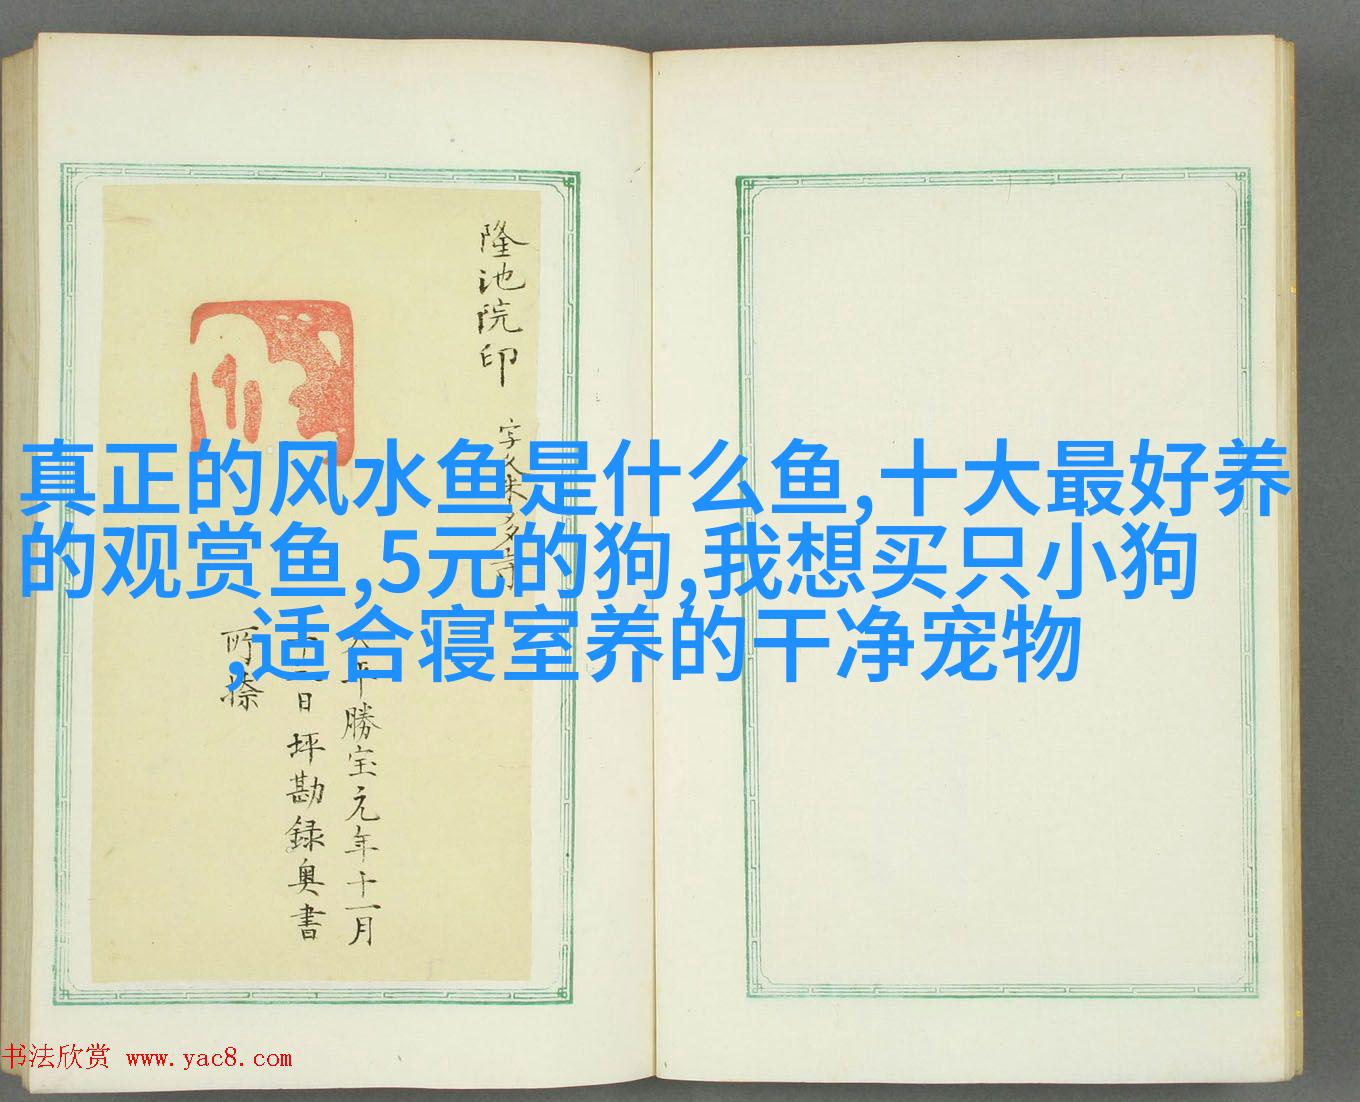 真正的风水鱼是什么鱼,十大最好养
的观赏鱼,5元的狗,我想买只小狗
,适合寝室养的干净宠物
隆池院印
平勝宝元年十一月
日坪勘録奥書
所捺
书法欣赏 www.yac8.com